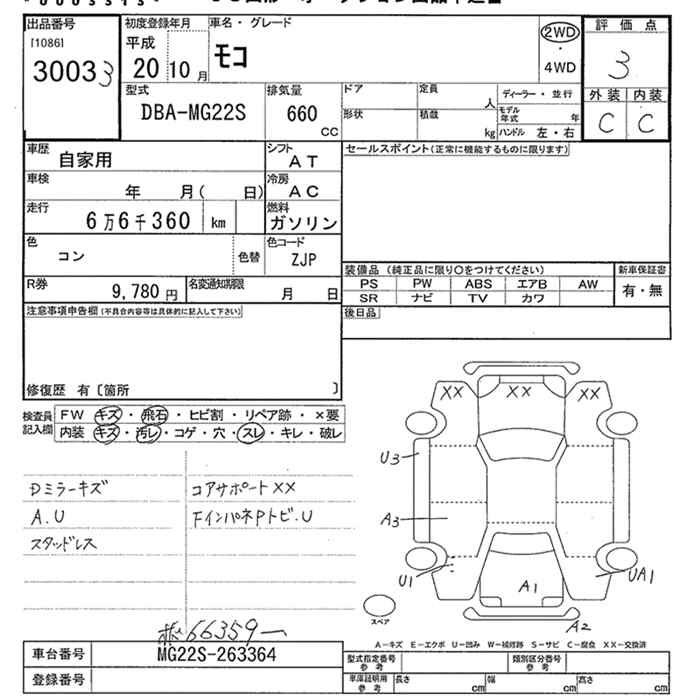 出品番号 初度登録年月 車名・グレード 2WD 評価点
[1086] 平成 モコ ・ 3
30033 20 10月 4WD
型式 排気量 ドア 定員 ディーラー・並行 外装 内装
DBA-MG22S 660 CC 人 モデル年式 年 C C
形状 積載 kg ハンドル 左・右
車歴 自家用 シフト AT セールスポイント(正常に機能するものに限ります)
車検 年 月( 日) 冷房 AC
走行 6万6千360 km 燃料 ガソリン
色 コン 色替 色コード ZJP
装備品 (純正品に限り○をつけてください) 新車保証書
R券 9,780円 名変通知期限 月 日 PS PW ABS エアB AW 有・無
SR ナビ TV カワ
注意事項申告欄(不具合内容等は具体的に記入して下さい) 後日品
修復歴 有〔箇所 〕
検査員記入欄 FW キズ・飛石・ヒビ割・リペア跡・×要
内装 キズ・汚レ・コゲ・穴・スレ・キレ・破レ
XX XX XX
U3
Dミラーキズ コアサポートXX
A.U FインパネPトビ.U A3
スタッドレス
U1 A1 UA1
スペア A2
66359
A-キズ E-エクボ U-凹み W-補修跡 S-サビ C-腐食 XX-交換済
車台番号 MG22S-263364 型式指定番号 参考 類別区分番号 参考
登録番号 車庫証明用 参考 長さ cm 幅 cm 高さ cm